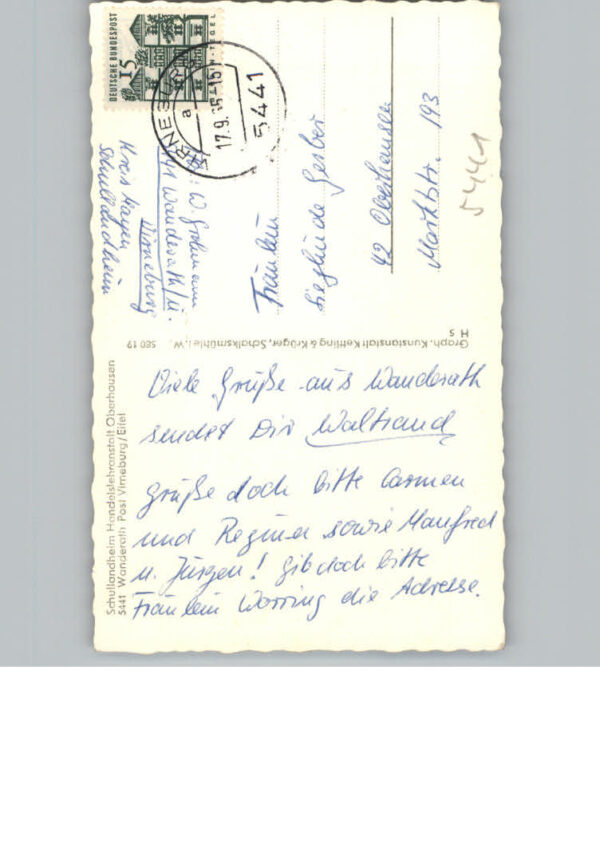 Viele Grüße aus Wanderath
sendet Dir Waltraud
Grüße doch bitte Carmen
und Regina sowie Manfred
u. Jürgen! Gib doch bitte
Fräulein Worring die Adresse.
Schullandheim Handelslehranstalt Oberhausen
5441 Wanderath Post Virneburg/Eifel
Graph. Kunstanstalt Kettling & Krüger, Schalksmühle i. W. 580 19
H S
DEUTSCHE BUNDESPOST
15
17.9.65-16
5441
W.
5441 Wanderath/ü.
Virneburg
Kreis Mayen
Schullandheim
Fräulein
Sieglinde Gerber
42 Oberhausen
Marktstr. 193
5441